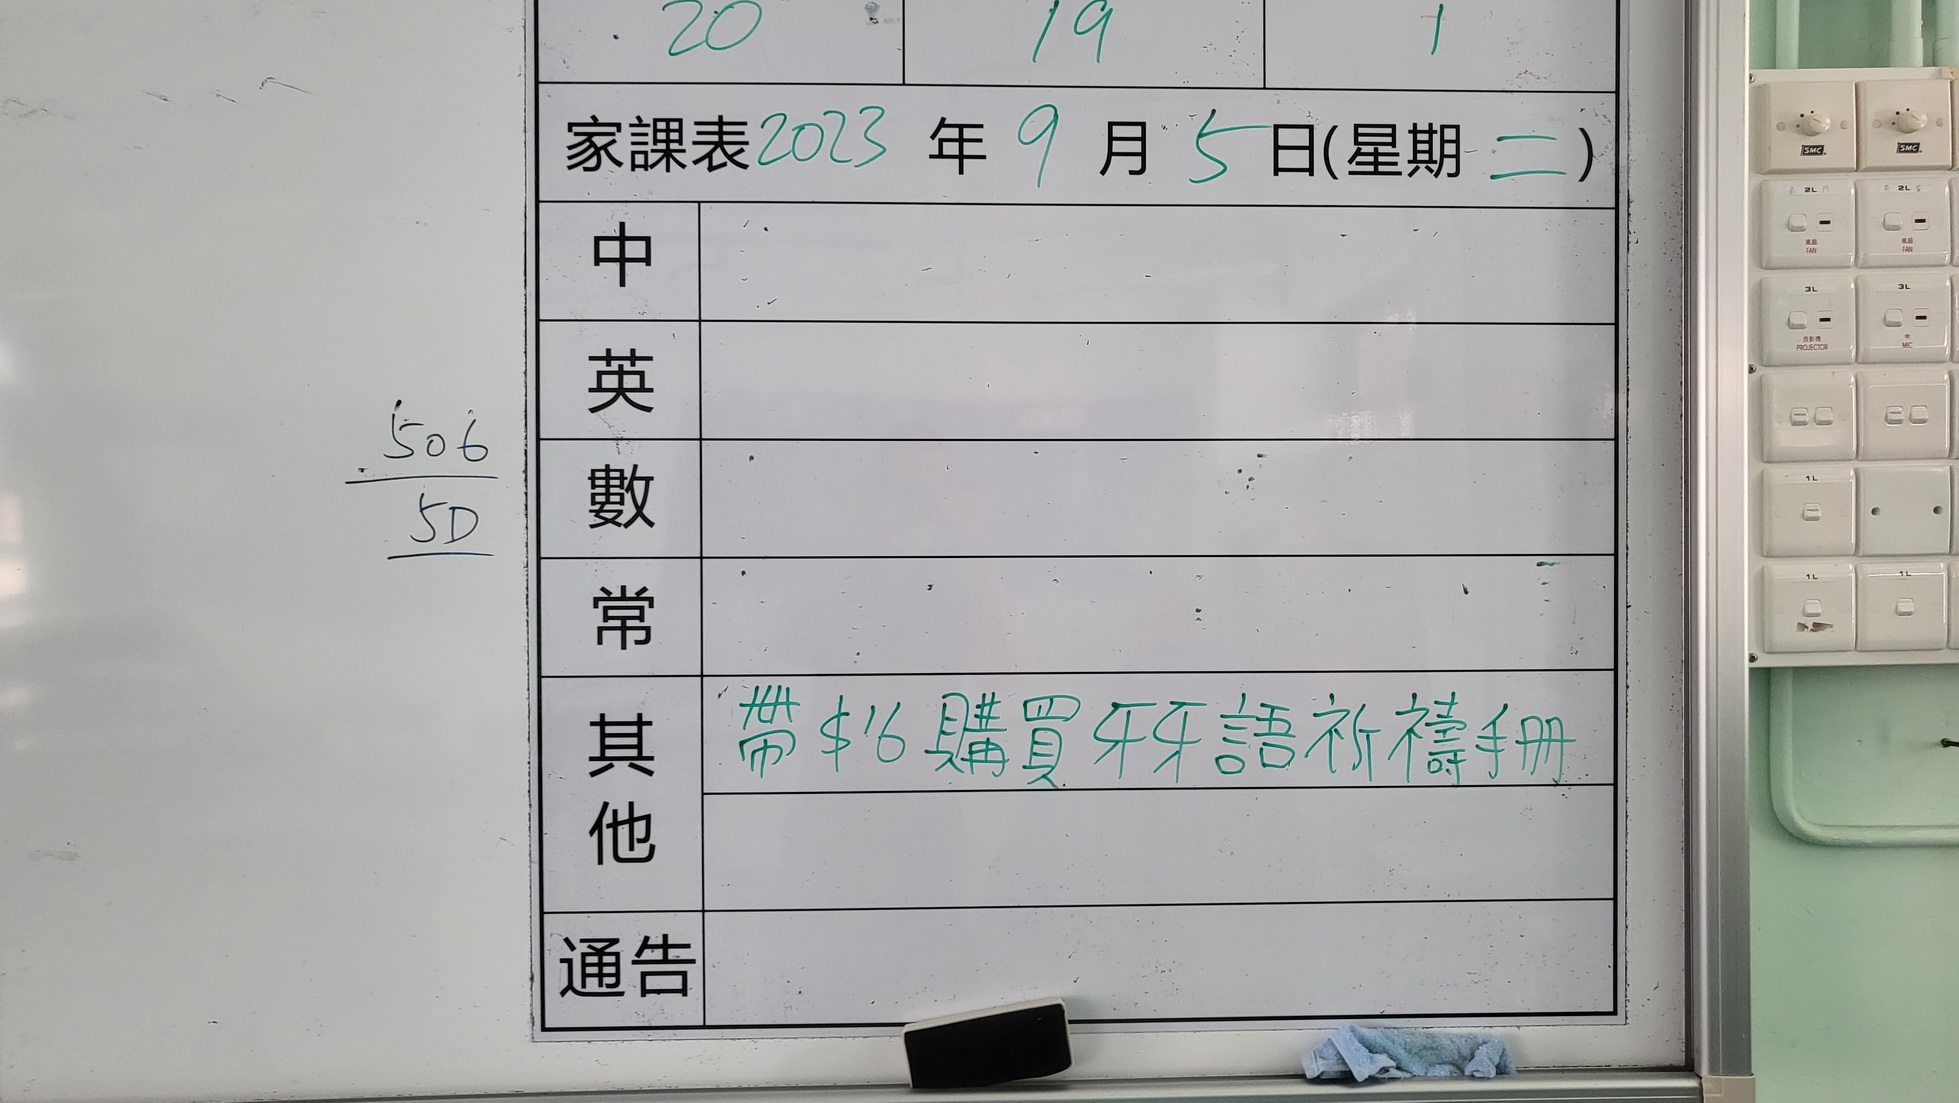 20 19 1
家課表2023 年 9 月 5 日(星期 二 )
中
英
數
常
其他
帶$16購買牙牙語祈禱手冊
通告
506
5D
SMC
SMC
2L
2L
風扇
FAN
風扇
FAN
3L
3L
投影機
PROJECTOR
MIC
1L
1L
1L